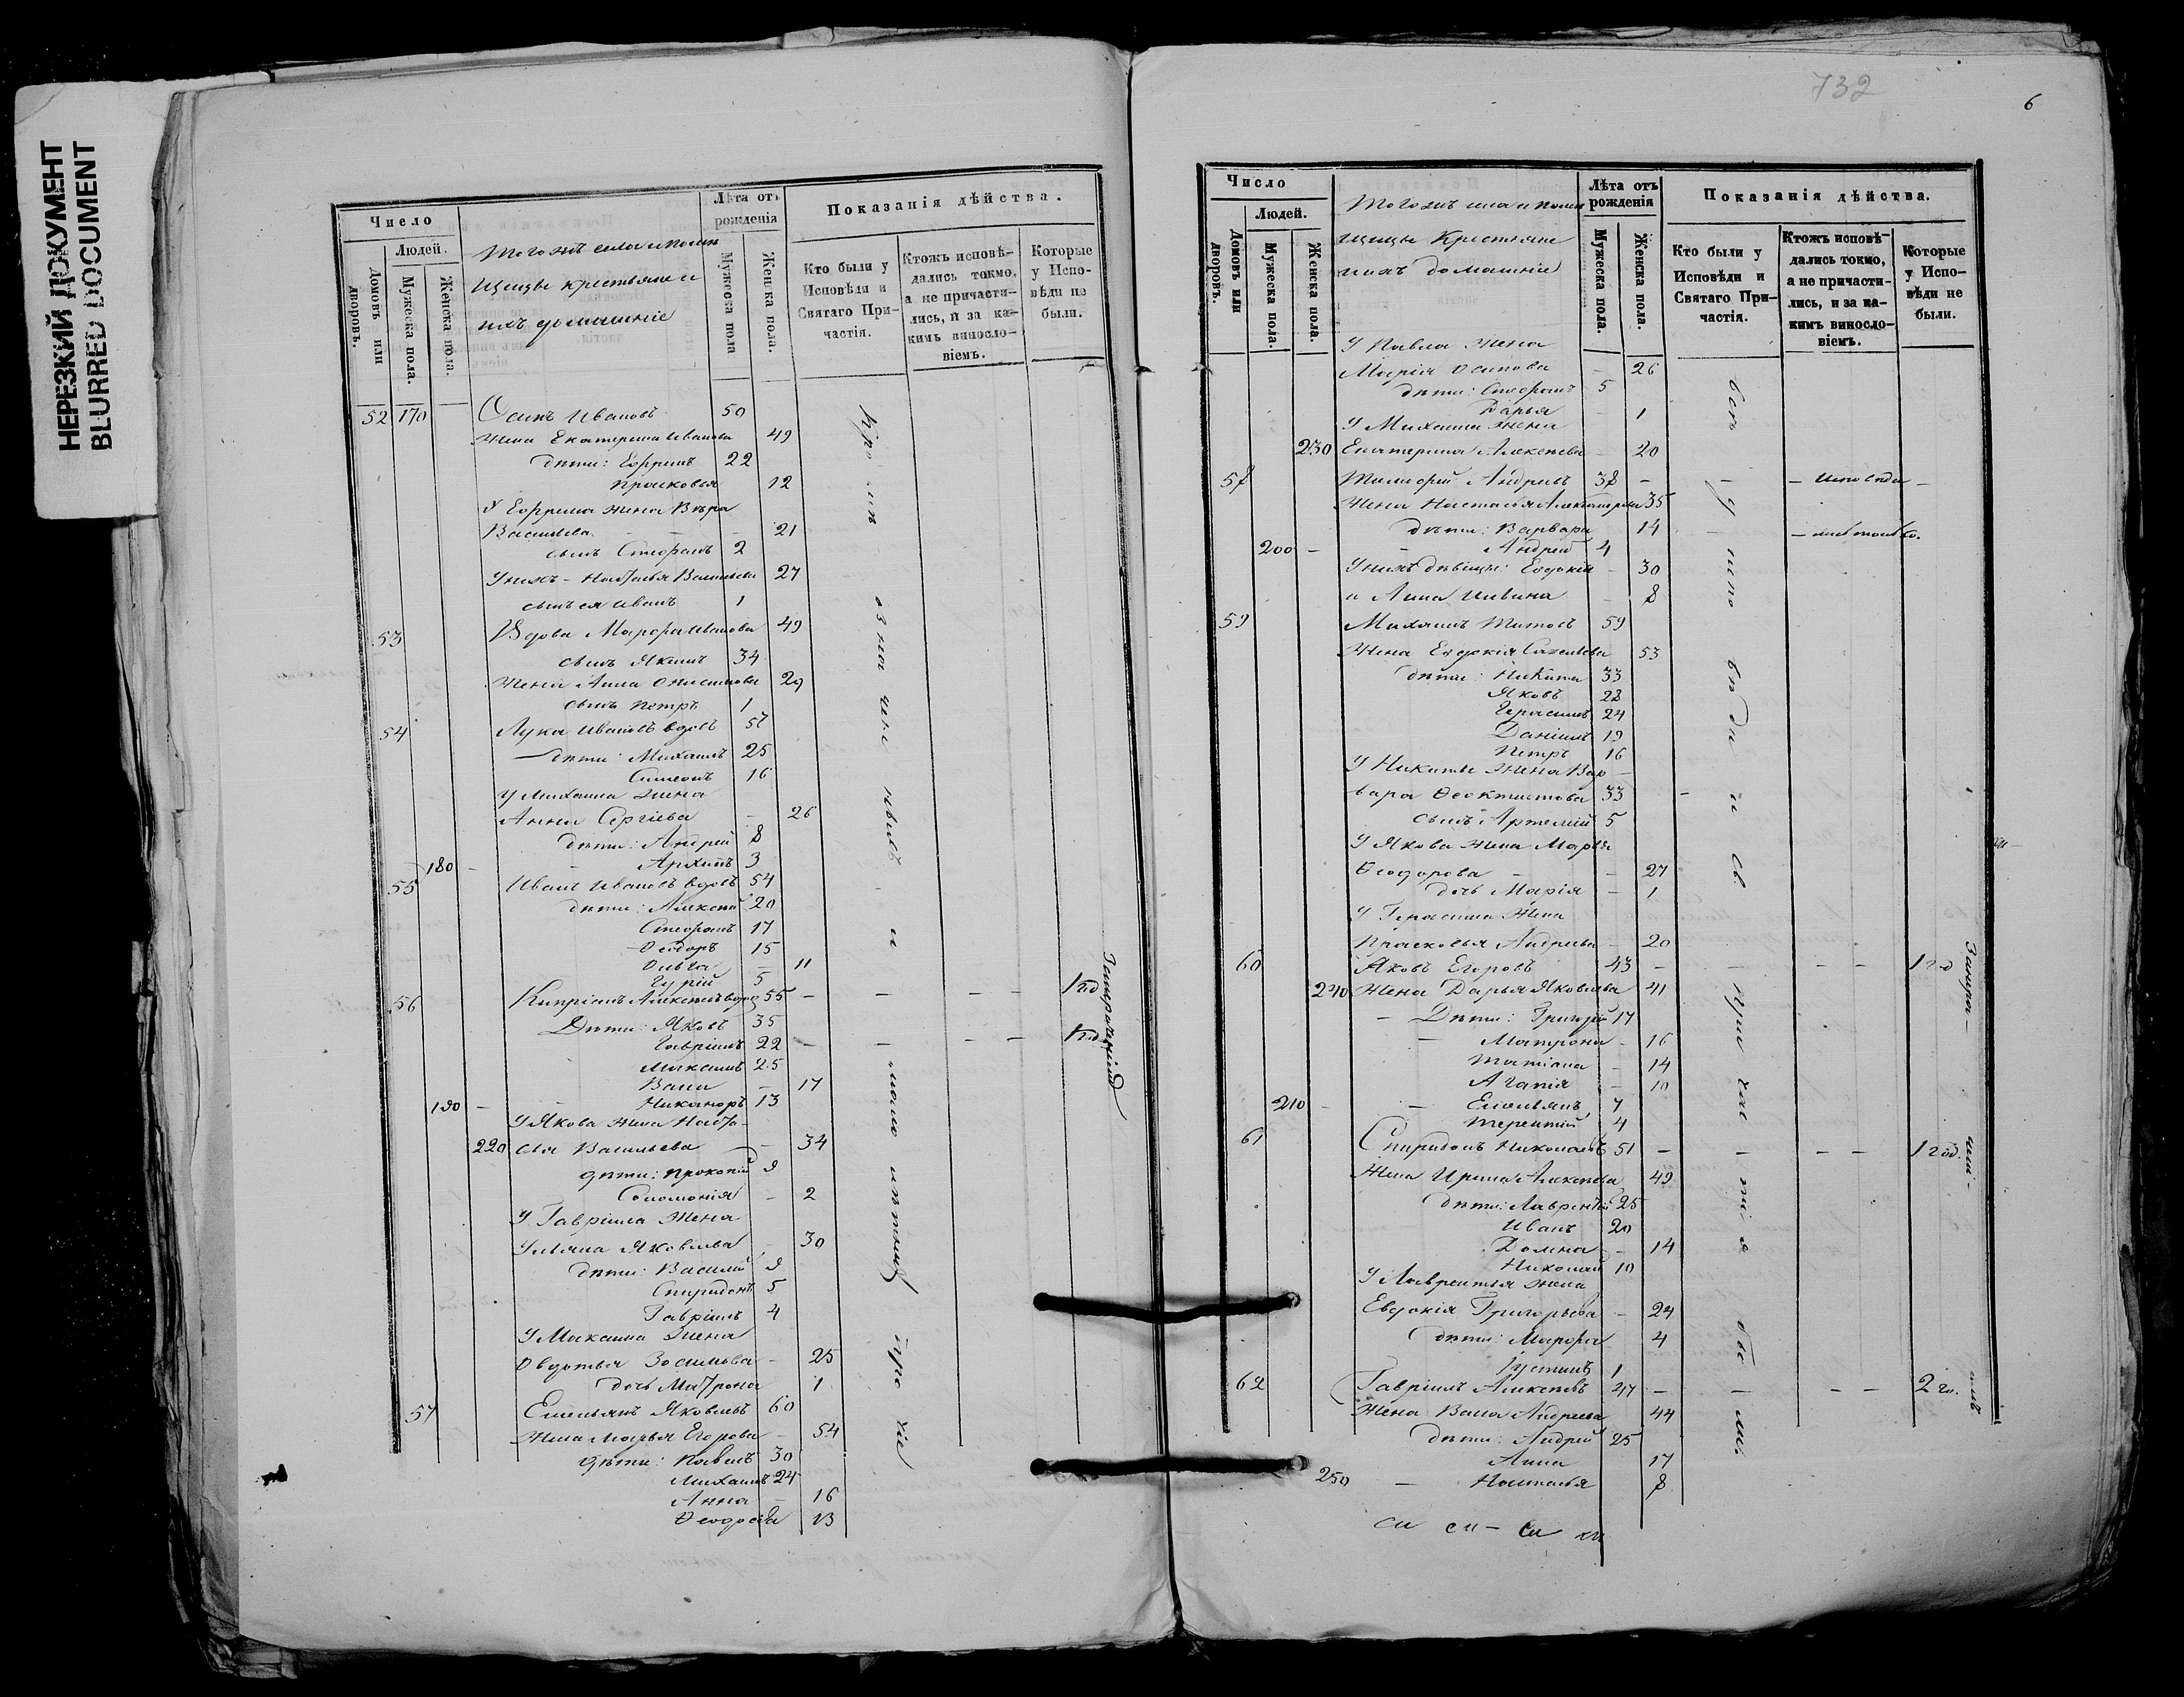 НЕРЕЗКИЙ ДОКУМЕНТ
BLURRED DOCUMENT
Число
Людей.
Домовъ или дворовъ.
Мужеска пола.
Женска пола.
Тогожъ села и помѣ
щицы крестьяне и
ихъ домашніе
Лѣта отъ
рожденія
Мужеска пола
Женска пола.
Показанія дѣйства.
Кто были у
Исповѣди и
Святаго При-
частія.
Ктожъ исповѣ-
дались токмо,
а не причасти-
лись, и за ка-
кимъ виносло-
віемъ.
Которые
у Испо-
вѣди не
были.
52 170 Осипъ Ивановъ 50
Жена Екатерина Иванова 49
дѣти: Ефремъ 22
Прасковья 12
У Ефрема жена Вѣра
Васильева 21
сынъ Стефанъ 2
У нихъ - Наталья Васильева 27
сынъ ея Иванъ 1
53 Вдова Марфа Иванова 49
сынъ Якимъ 34
Жена Анна Онисимова 29
сынъ Петръ 1
54 Лука Ивановъ вдовъ 57
дѣти: Михаилъ 25
Симеонъ 16
У Михаила жена
Анна Сергіева - 26
дѣти: Андрей 8
180 - Архипъ 3
55 Иванъ Ивановъ вдовъ 54
дѣти: Алексѣй 20
Стефанъ 17
Ѳеодоръ 15
Ольга - 11
Гурій 5
56 Кипріанъ Алексѣевъ вдовъ 55 - - - - 1 год
Дѣти: Яковъ 35
Гавріилъ 22 - - - - 1 год
Макаимъ 25
Васса - 17
190 - Никаноръ 13
У Якова жена Наста-
220 сья Васильева - 34
дѣти: Прокопій 9
Соломонія - 2
У Гавріила жена
Ульяна Яковлева - 30
дѣти: Василій 9
Спиридонъ 5
Гавріилъ 4
У Макаима жена
Овдотья Зосимова - 25
дочь Матрона 1
57 Емельянъ Яковлевъ 60
Жена Марья Егорова - 54
дѣти: Павелъ 30
Михаилъ 24
Анна - 16
Ѳеодосія 13
732
6
Число
Людей.
Домовъ или дворовъ.
Мужеска пола.
Женска пола.
Тогожъ села и помѣ
щицы Крестьяне
и ихъ домашніе
Лѣта отъ
рожденія
Мужеска пола.
Женска пола.
Показанія дѣйства.
Кто были у
Исповѣди и
Святаго При-
частія.
Ктожъ исповѣ-
дались токмо,
а не причасти-
лись, и за ка-
кимъ виносло-
віемъ.
Которые
у Испо-
вѣди не
были.
У Павла жена
Марія Осипова - 26
дѣти: Стефанъ 5
Дарья - 1
У Михаила жена
230 Екатерина Алексѣева - 20
58 Тимофей Андреевъ 38 -
Жена Настасья 35
дѣти: Варвара 14
200 - Андрей 4
У нихъ дѣвицы: Евдокія - 30
и Анна - 8
59 Михаилъ Титовъ 59
Жена Евдокія Савельева 53
дѣти: Никита 33
Яковъ 28
Герасимъ 24
Даніилъ 19
Петръ 16
У Никиты жена Вар-
вара Ѳеоктистова 33
сынъ Артемій 5
У Якова жена Марья
Ѳеодорова - - 27
дочь Марія - 1
У Герасима жена
Прасковья Андреева - 20
60 Яковъ Егоровъ 43 - - - - 1 год
240 Жена Дарья Яковлева 41
- Дѣти: Григорій 17
- Матрона - 16
Татіана - 14
Агапія - 10
210 - - Емельянъ 7
Терентій 4
61 Спиридонъ Николаевъ 51 - - - - 1 год.
Жена Ирина Алексѣева 49
дѣти: Лаврентій 25
Иванъ 20
Домна - 14
Николай 10
У Лаврентья жена
Евдокія Григорьева - 24
дѣти: Марфа 4
Іустинъ 1
62 Гавріилъ Алексѣевъ 47 - - - - 2 го.
Жена Васса Андреева 44
дѣти: Андрей 25
Анна 17
250 - Наталья 8